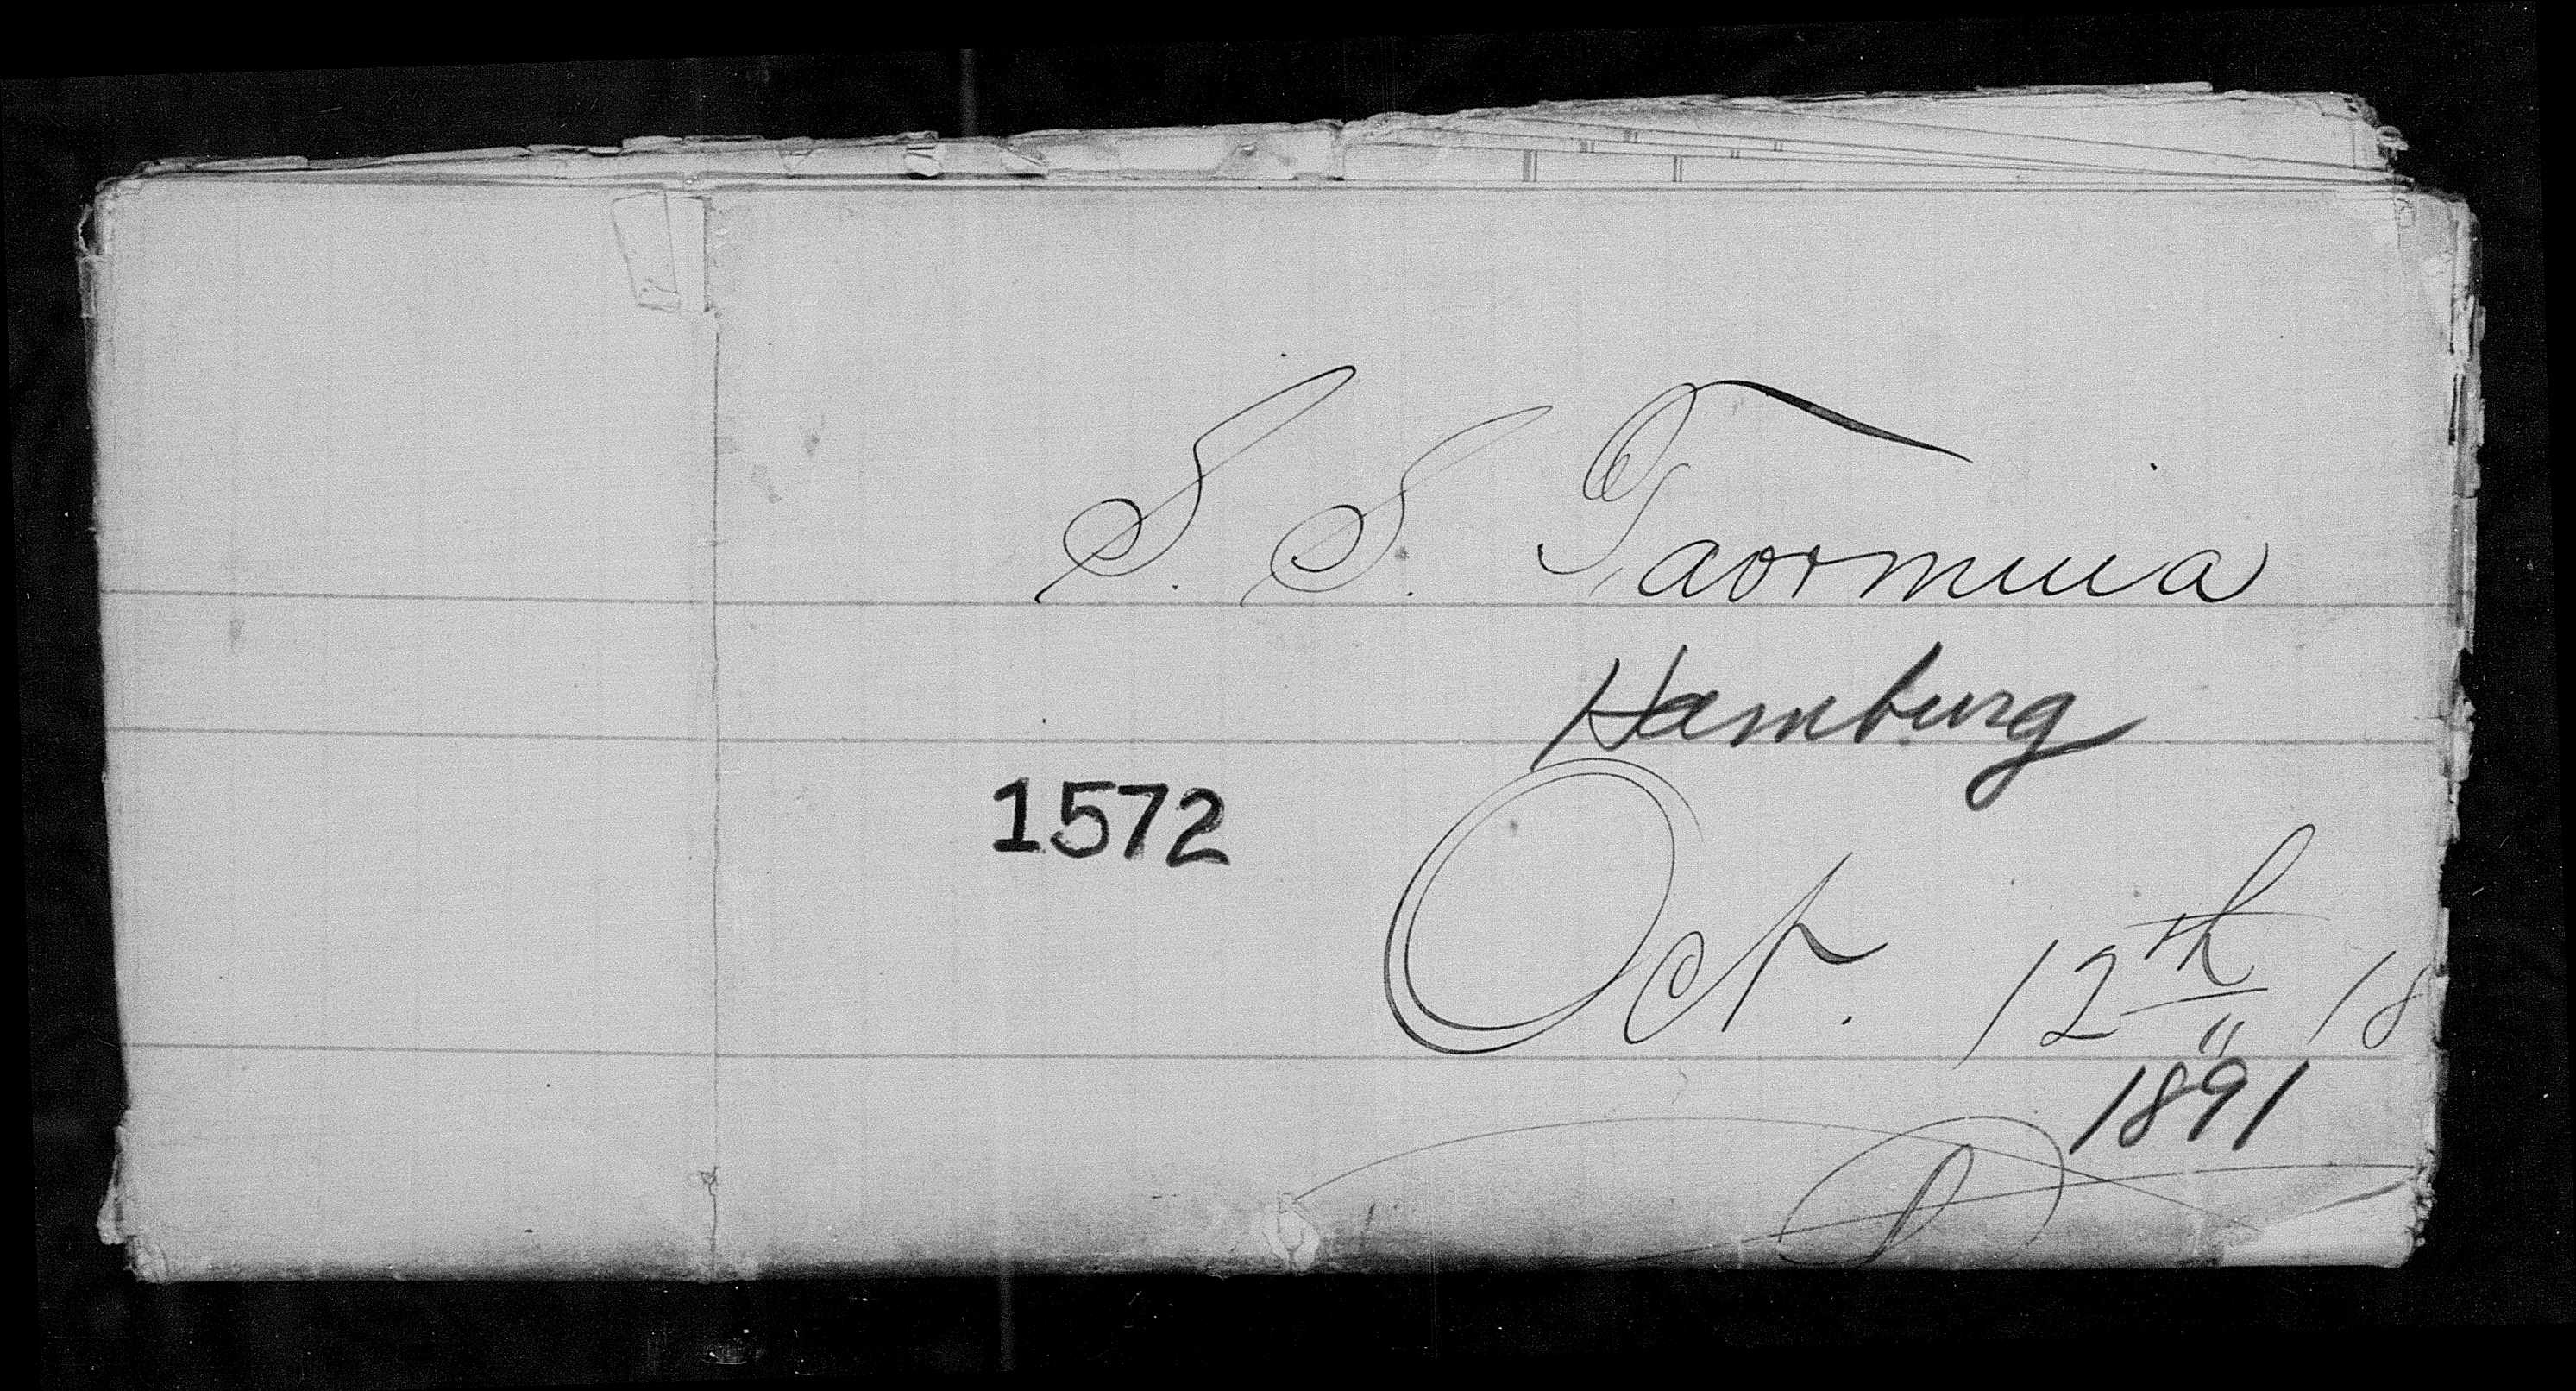 S. S. Taormina
Hamburg
1572
Oct. 12th 18
1891